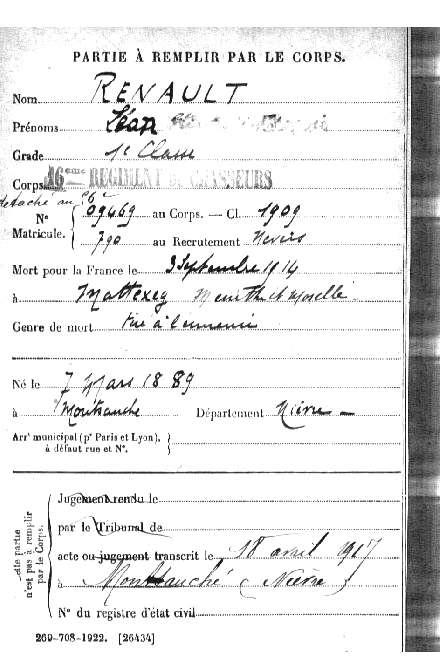 PARTIE À REMPLIR PAR LE CORPS.
Nom RENAULT
Prénoms Jean
Grade 1e Classe
Corps 16eme REGIMENT DE CHASSEURS
détaché au
N° 09469 au Corps. — Cl. 1909
Matricule. 790 au Recrutement Nevers
Mort pour la France le 3 Septembre 1914
à Mattexey Meurthe et Moselle
Genre de mort tué à l'ennemi
Né le 7 Mars 1889
à Montsauche Département Nièvre
Arrt municipal (pr Paris et Lyon),
à défaut rue et N°.
Cette partie
n'est pas à remplir
par le Corps.
Jugement rendu le
par le Tribunal de
acte ou jugement transcrit le 18 avril 1917
à Montsauche (Nièvre)
N° du registre d'état civil
269-708-1922. [26434]